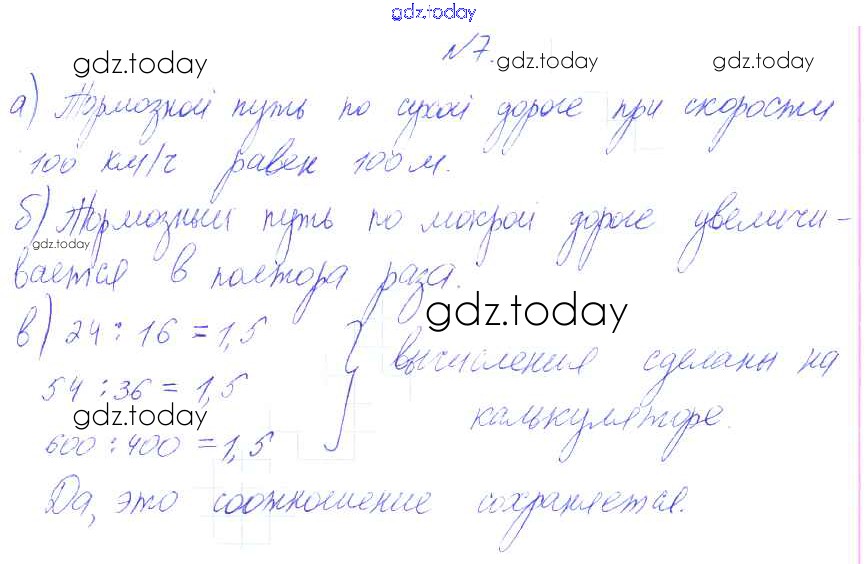 gdz.today
№7.
gdz.today gdz.today gdz.today
а) Тормозной путь по сухой дороге при скорости
100 км/ч равен 100 м.
б) Тормозный путь по мокрой дороге увеличи-
gdz.today
вается в полтора раза.
gdz.today
в) 24 : 16 = 1,5
вычисления сделаны на
54 : 36 = 1,5
калькуляторе.
gdz.today
600 : 400 = 1,5
Да, это соотношение сохраняется.